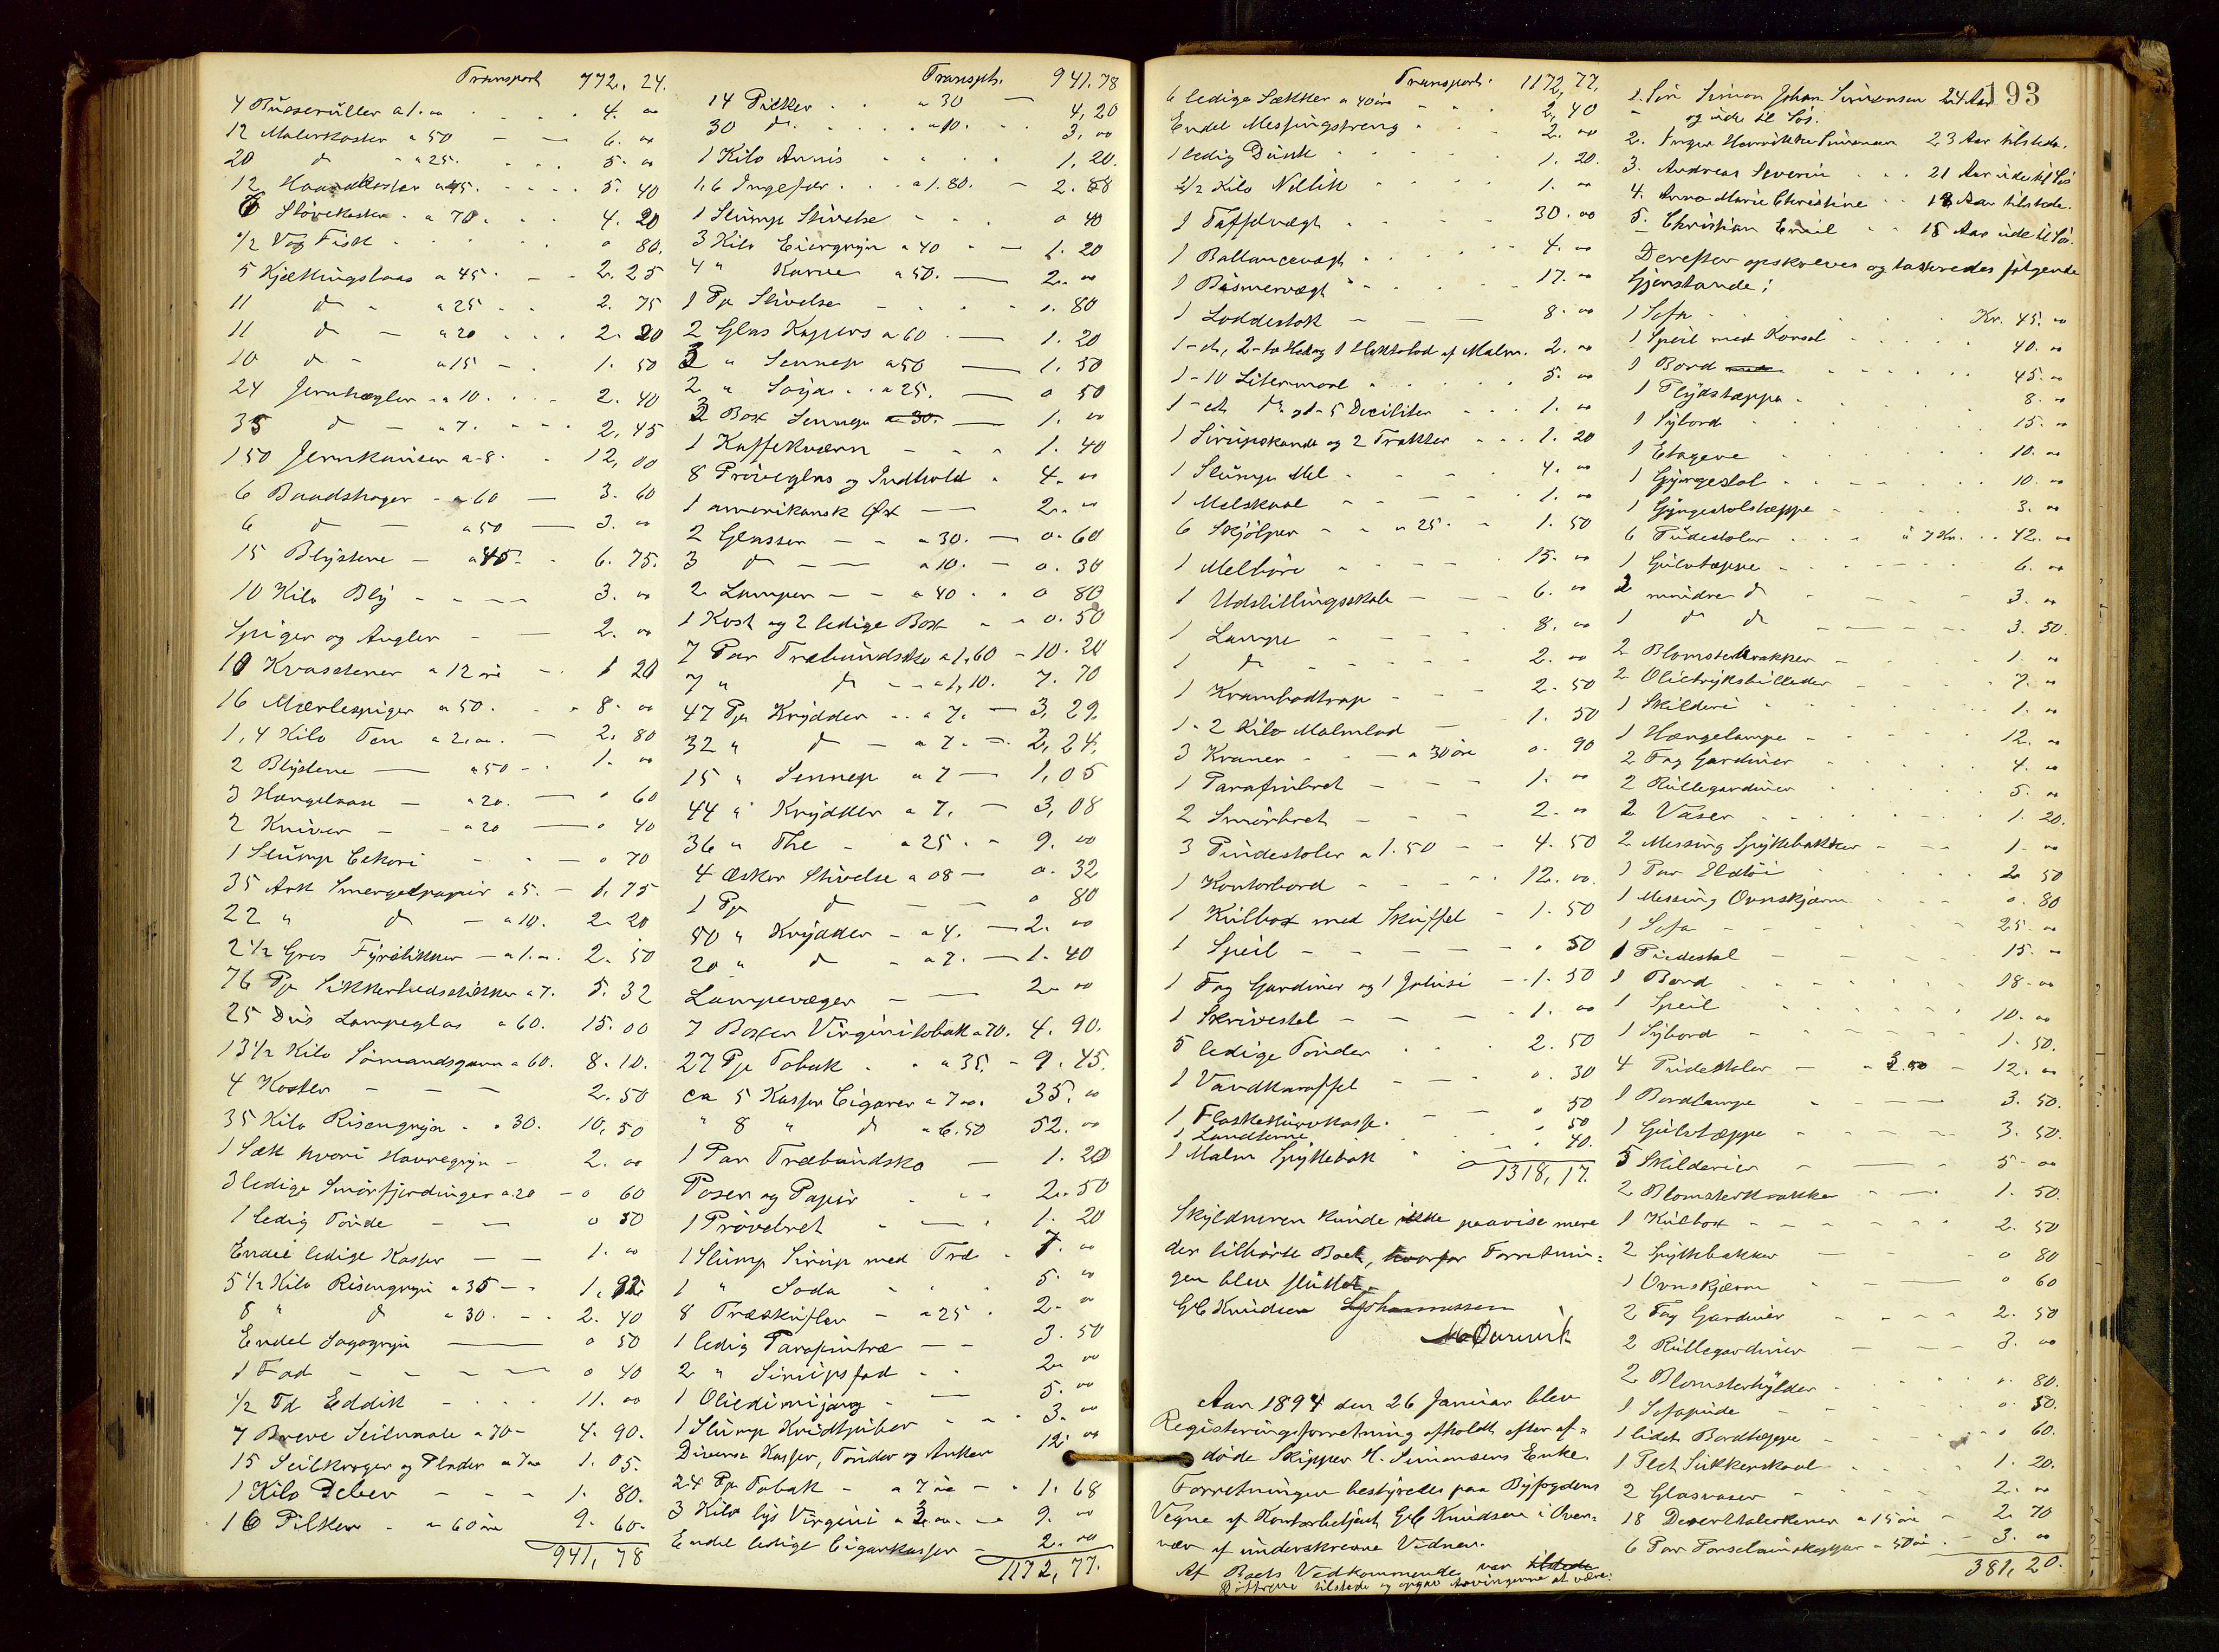 Transport 772,24.
4 Busseruller a 1.00 4.00
12 Malerkoster a 50 6.00
20 do a 25. 5.00
12 Haandkoster a 45. 5.40
6 Støvekoster a 70. 4.20
1/2 Vog Fisk 0 80.
5 Kjættingslaas a 45. 2.25
11 do a 25 2.75
11 do a 20 2.20
10 do a 15 1.50
24 Jernhægler a 10. 2.40
35 do a 7. 2,45
150 Jernkauser a 8. 12,00
6 Baadshager a 60 3.60
6 do a 50 3.00
15 Blystene a 45. 6.75.
10 Kilo Bly 3.00
Spiger og Angler 2.00
10 Kvaststener a 12 øre 1 20
16 Mærlespiger a 50. 8.00
1,4 Kilo Ten a 2,00. 2.80
2 Blystene a 50 1.00
3 Hængelaase a 20. 0 60
2 Kniver a 20 0 40
1 Slump Cekori 0 70
35 Ark Smergelpapir a 5. 1,75
22 " do a 10. 2.20
2 1/2 Gros Fyrstikker a 1.00. 2.50
76 Pk Sikkerhedsstikker a 7. 5.32
25 Dus Lampeglas a 60. 15.00
13 1/2 Kilo Sømandsgarn a 60. 8.10.
4 Koster 2.50
35 Kilo Risengryn a 30. 10,50
1 Sæk hvori Havregryn 2.00
3 ledige Smørfjerdinger a 20 0 60
1 ledig Tønde 0 50
Endel ledige Kasser 1.00
5 1/2 Kilo Risengryn a 35 1,92
8 " do a 30. 2.40
Endel Sagogryn 0 50
1 Fad 0 40
1/2 Td Eddik 11.00
7 Breve Seilnaale a 70 4.90.
15 Seilkroger og Plader a 7 øre 1.05.
1 Kilo Peber 1.80.
16 Pilker a 60 øre 9.60.
941,78
Transpt. 941.78
14 Pilker a 30 4,20
30 do a 10. 3,00
1 Kilo Annis 1,20.
1,6 Ingefær a 1.80. 2.88
1 Slump Stivelse 0 40
3 Kilo Eiergryn a 40 1.20
4 " Karve a 50. 2.00
1 Pk Stivelse 0.80
2 Glas Kapers a 60 1.20
3 " Sennep a 50 1.50
2 " Soya a 25. 0 50
2 Box Sennep 1.00
1 Kaffekværn 1.40
8 Prøveglas og Indhold 4.00
1 amerikansk Øx 2.00
2 Glasser a 30. 0.60
3 do a 10. 0.30
2 Lamper a 40 0 80
1 Kost og 2 ledige Box 0.50
7 Par Træbundsko a 1,60 10.20
7 " do a 1,10. 7.70
47 Pk Krydder a 7. 3,29.
32 " do a 7. 2,24.
15 " Sennep a 7 1,05
44 " Krydder a 7. 3,08
36 " The a 25 9.00
4 Æsker Stivelse a 08 0.32
1 Pk do 0 80
50 " Krydder a 4. 2.00
20 " do a 7. 1.40
Lampevæger 2.00
7 Boxer Virginitobak a 70. 4.90.
27 Pk Tobak a 35. 9.45.
ca 5 Kasser Cigarer a 7.00. 35.00
" 8 " do a 6.50 52.00
1 Par Træbundsko 1.20
Poser og Papir 2.50
1 Prøvebret 1.20
1 Slump Sirup med Træ 7.00
1 " Soda 5.00
8 Træskufler a 25 2.00
1 ledig Parafintræ 3.50
2 " Sirupsfad 2.00
1 Oliedimijang 5.00
1 Slump Kridtpiber 3.00
Diverse Kasser, Tønder og Anker 12.00
24 Pk Tobak a 7 øre 1.68
3 Kilo lys Virgini a 3.00. 9.00
Endel ledige Cigarkasser 2.00
1172,77.
Transport. 1172,77.
6 ledige Sækker a 40 øre 2,40
Endel Messingstreng 2.00
1 ledig Dunk 1.20.
2 1/2 Kilo Nellik 1.00
1 Taffelvægt 30.00
1 Ballancevægt 4.00
1 Bismervægt 17.00
1 Loddestok 8.00
1 - do, 2 - to Hekto og 1 Hektolod af Malm. 2.00
1 - 10 Litermaal 5.00
1 - et do og do - 5 Deciliter 1.00
1 Sirupskande og 2 Trakter 1.20
1 Slump Mel 4.00
1 Melskaal 1.00
6 Skjølper a 25. 1.50
1 Melbøre 15.00
1 Udstillingsskab 6.00
1 Lampe 8.00
1 do 2.00
1 Krambodtrap 2.50
1 - 2 Kilo Malmlod 1.50
3 Kraner a 30 øre 0.90
1 Parafinbret 1.00
2 Smørbret 2.00
3 Pindestoler a 1.50 4.50
1 Kontorbord 12.00.
1 Kulbox med Skuffel 1.50
1 Speil 0 50
1 Fag Gardiner og 1 Jalusi 1.50
1 Skrivestel 1.00
5 ledige Tønder 2.50
1 Vandkaraffel 0.30
1 Flaskekurvkasse 0 50
1 Landterne 0 50
1 Malm Spyttebak 0 40.
1318,17.
Skyldneren kunde ikke paavise mere
der tilhørte Boet, hvorfor Forretnin=
gen blev sluttet.
GC Knudsen Johannessen
Aar 1894 den 26 Januar blev
Registreringsforretning afholdt efter af=
døde Skipper H. Simonsens Enke.
Forretningen bestyredes paa Byfogdens
Vegne af Kontorbetjent GC Knudsen i Over=
vær af underskrevne Vidner.
Af Boets Vedkommende var tilstede
Døttrene tilstede og opgav Arvingerne at være:
193
1. Søn Simon Johan Simonsen 24 Aar
og ude til Søs.
2. Inger Henrikke Simonsen 23 Aar tilstede.
3. Andreas Severin 21 Aar ude til Søs
4. Anna Marie Christine 18 Aar tilstede.
5. Christian Emil 15 Aar ude til Søs.
Derefter opskreves og taxeredes følgende
Gjenstande:
1 Sofa Kr. 45.00
1 Speil med Konsol 40.00
1 Bord 45.00
1 Plydstæppe 8.00
1 Sybord 15.00
1 Etagere 10.00
1 Gyngestol 10.00
1 Gyngestolstæppe 3.00
6 Pudestoler a 7 Kr. 42.00
1 Gulvtæppe 6.00
2 mindre do 3.00
1 do do 3.50.
2 Blomsterkrakker 1.00
2 Olietryksbilleder 7.00
1 Skilderi 1.00
1 Hængelampe 12.00
2 Fag Gardiner 4.00
2 Rullegardiner 5.00
2 Vaser 1.20.
2 Messing Spyttebakker 1.00
1 Par Ildtøi 2 50
1 Messing Ovnskjærm 0.80
1 Sofa 25.00
1 Pudestol 15.00
1 Bord 18.00
1 Speil 10.00
1 Sybord 1.50.
4 Pudestoler a 3.00 12.00
1 Bordlampe 3.50.
1 Gulvtæppe 3.50.
5 Skilderier 5.00
2 Blomsterkrakker 1.50.
1 Kulbox 2.50
2 Spyttebakker 0 80
1 Ovnskjærm 0 60
2 Fag Gardiner 2.50
2 Rullegardiner 3.00
2 Blomsterhylder 0.80.
1 Sofapude 0.50.
1 lidet Bordteppe 0 60.
1 Plet Sukkerskaal 1.20.
2 Glasvaser 2.00
18 Deserttalerkener a 15 øre 2.70
6 Par Porselainskopper a 50 øre 3.00
381,20.